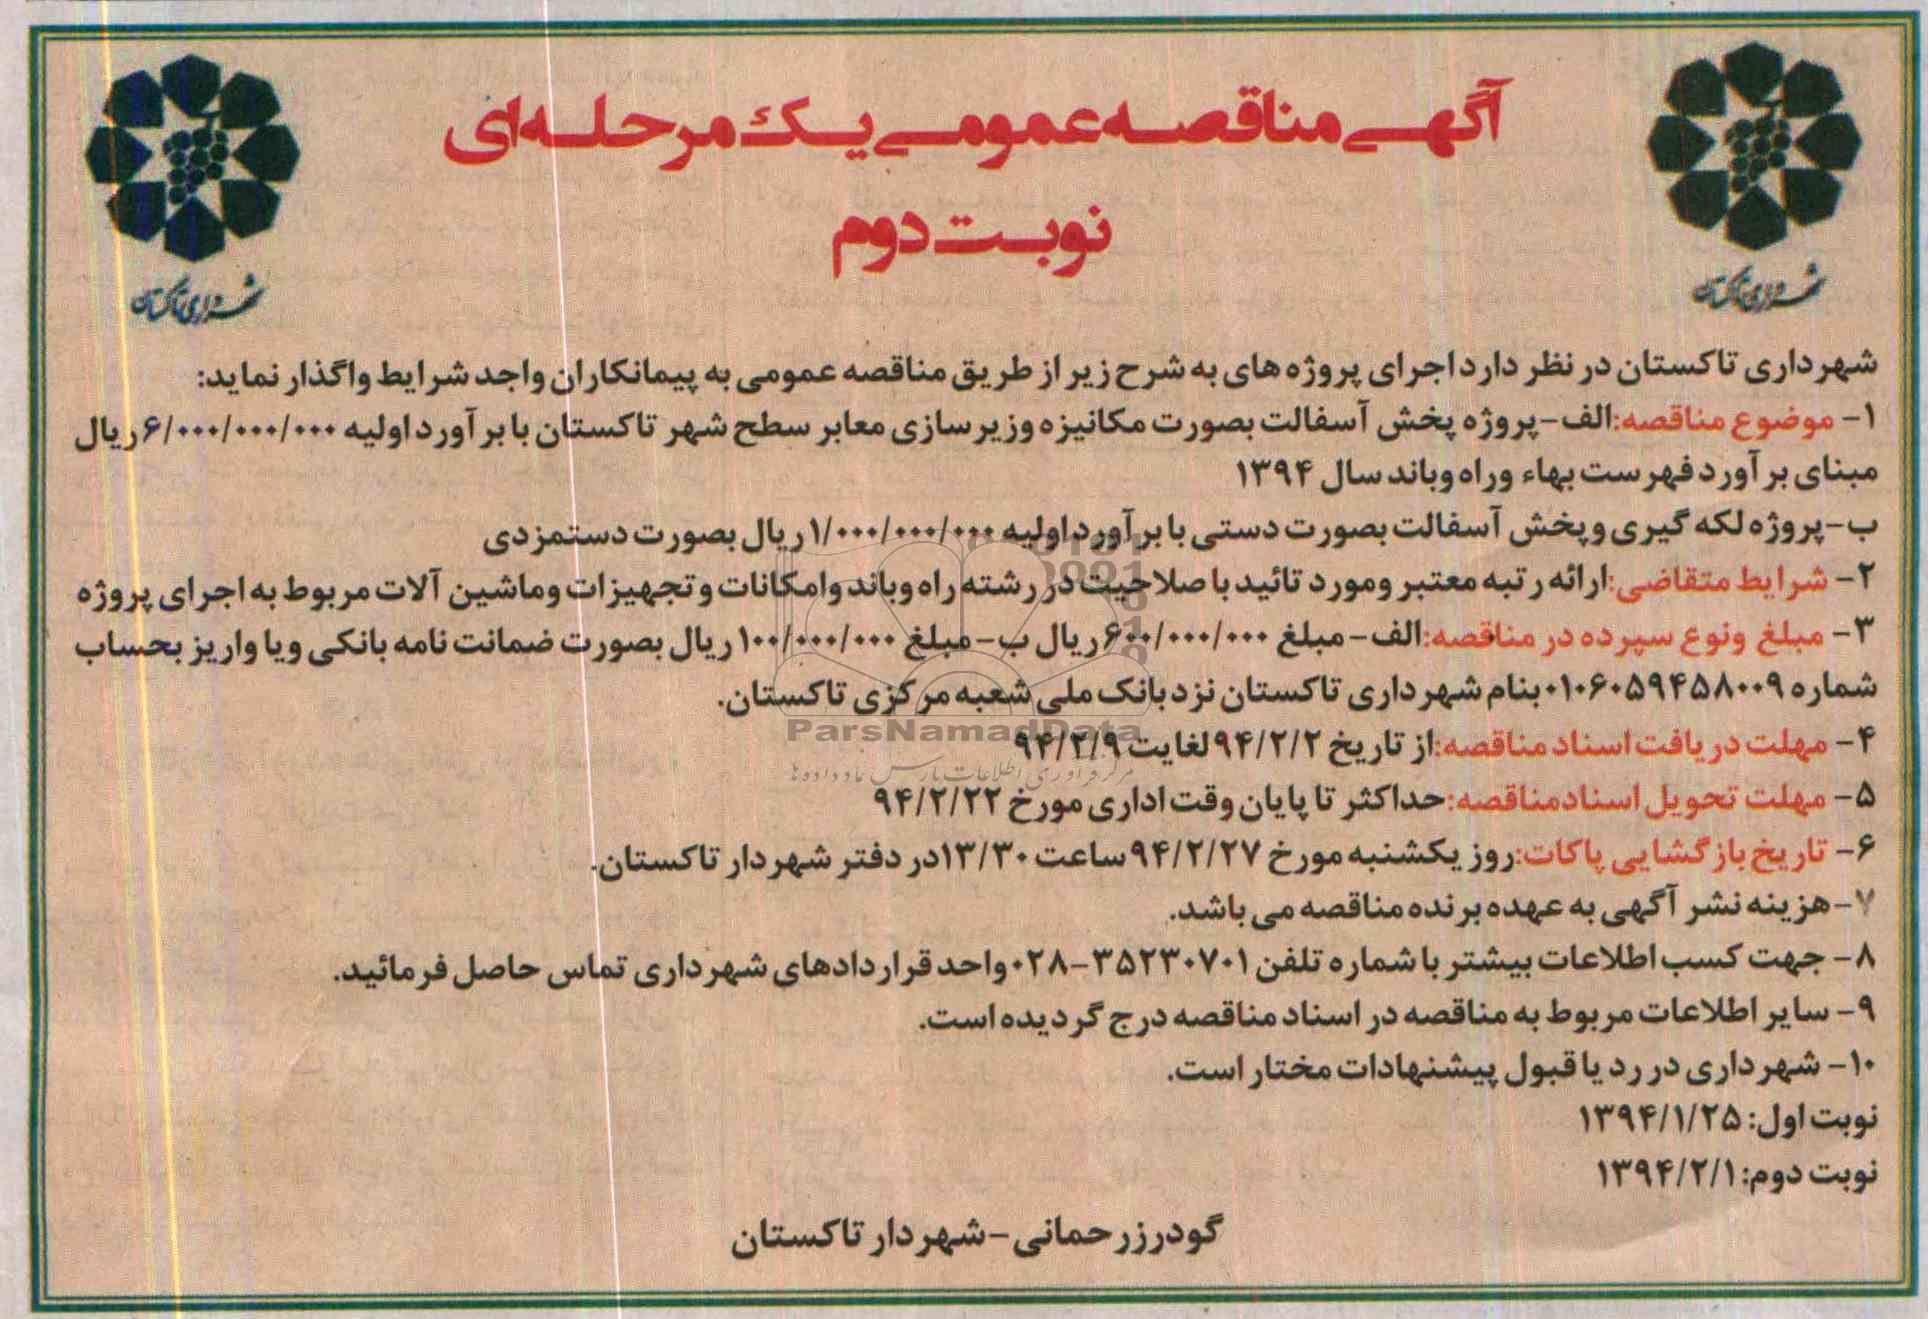 آگهی مناقصه عمومی یک مرحله‌ای
نوبت دوم
شهرداری تاکستان
شهرداری تاکستان
شهرداری تاکستان در نظر دارد اجرای پروژه های به شرح زیر از طریق مناقصه عمومی به پیمانکاران واجد شرایط واگذار نماید:
۱- موضوع مناقصه:الف-پروژه پخش آسفالت بصورت مکانیزه وزیرسازی معابر سطح شهر تاکستان با برآورد اولیه ۶/۰۰۰/۰۰۰/۰۰۰ریال
مبنای برآورد فهرست بهاء وراه وباند سال ۱۳۹۴
ب-پروژه لکه گیری و پخش آسفالت بصورت دستی با برآورد اولیه ۱/۰۰۰/۰۰۰/۰۰۰ریال بصورت دستمزدی
۲- شرایط متقاضی:ارائه رتبه معتبر ومورد تائید با صلاحیت در رشته راه وباند وامکانات وتجهیزات وماشین آلات مربوط به اجرای پروژه
۳- مبلغ ونوع سپرده در مناقصه:الف- مبلغ ۶۰۰/۰۰۰/۰۰۰ریال ب-مبلغ ۱۰۰/۰۰۰/۰۰۰ریال بصورت ضمانت نامه بانکی ویا واریز بحساب
شماره ۰۱۰۶۰۵۹۴۵۸۰۰۹بنام شهرداری تاکستان نزد بانک ملی شعبه مرکزی تاکستان.
ParsNamadData
۴- مهلت دریافت اسناد مناقصه:از تاریخ ۹۴/۲/۲لغایت ۹۴/۲/۹
مرکز فرآوری اطلاعات پارس نماد داده ها
۵- مهلت تحویل اسنادمناقصه:حداکثر تا پایان وقت اداری مورخ ۹۴/۲/۲۲
۶- تاریخ بازگشایی پاکات:روز یکشنبه مورخ ۹۴/۲/۲۷ساعت ۱۳/۳۰در دفتر شهردار تاکستان.
۷-هزینه نشر آگهی به عهده برنده مناقصه می باشد.
۸- جهت کسب اطلاعات بیشتر با شماره تلفن ۳۵۲۳۰۷۰۱-۰۲۸واحد قراردادهای شهرداری تماس حاصل فرمائید.
۹- سایر اطلاعات مربوط به مناقصه در اسناد مناقصه درج گردیده است.
۱۰- شهرداری در رد یا قبول پیشنهادات مختار است.
نوبت اول: ۱۳۹۴/۱/۲۵
نوبت دوم: ۱۳۹۴/۲/۱
گودرز رحمانی-شهردار تاکستان